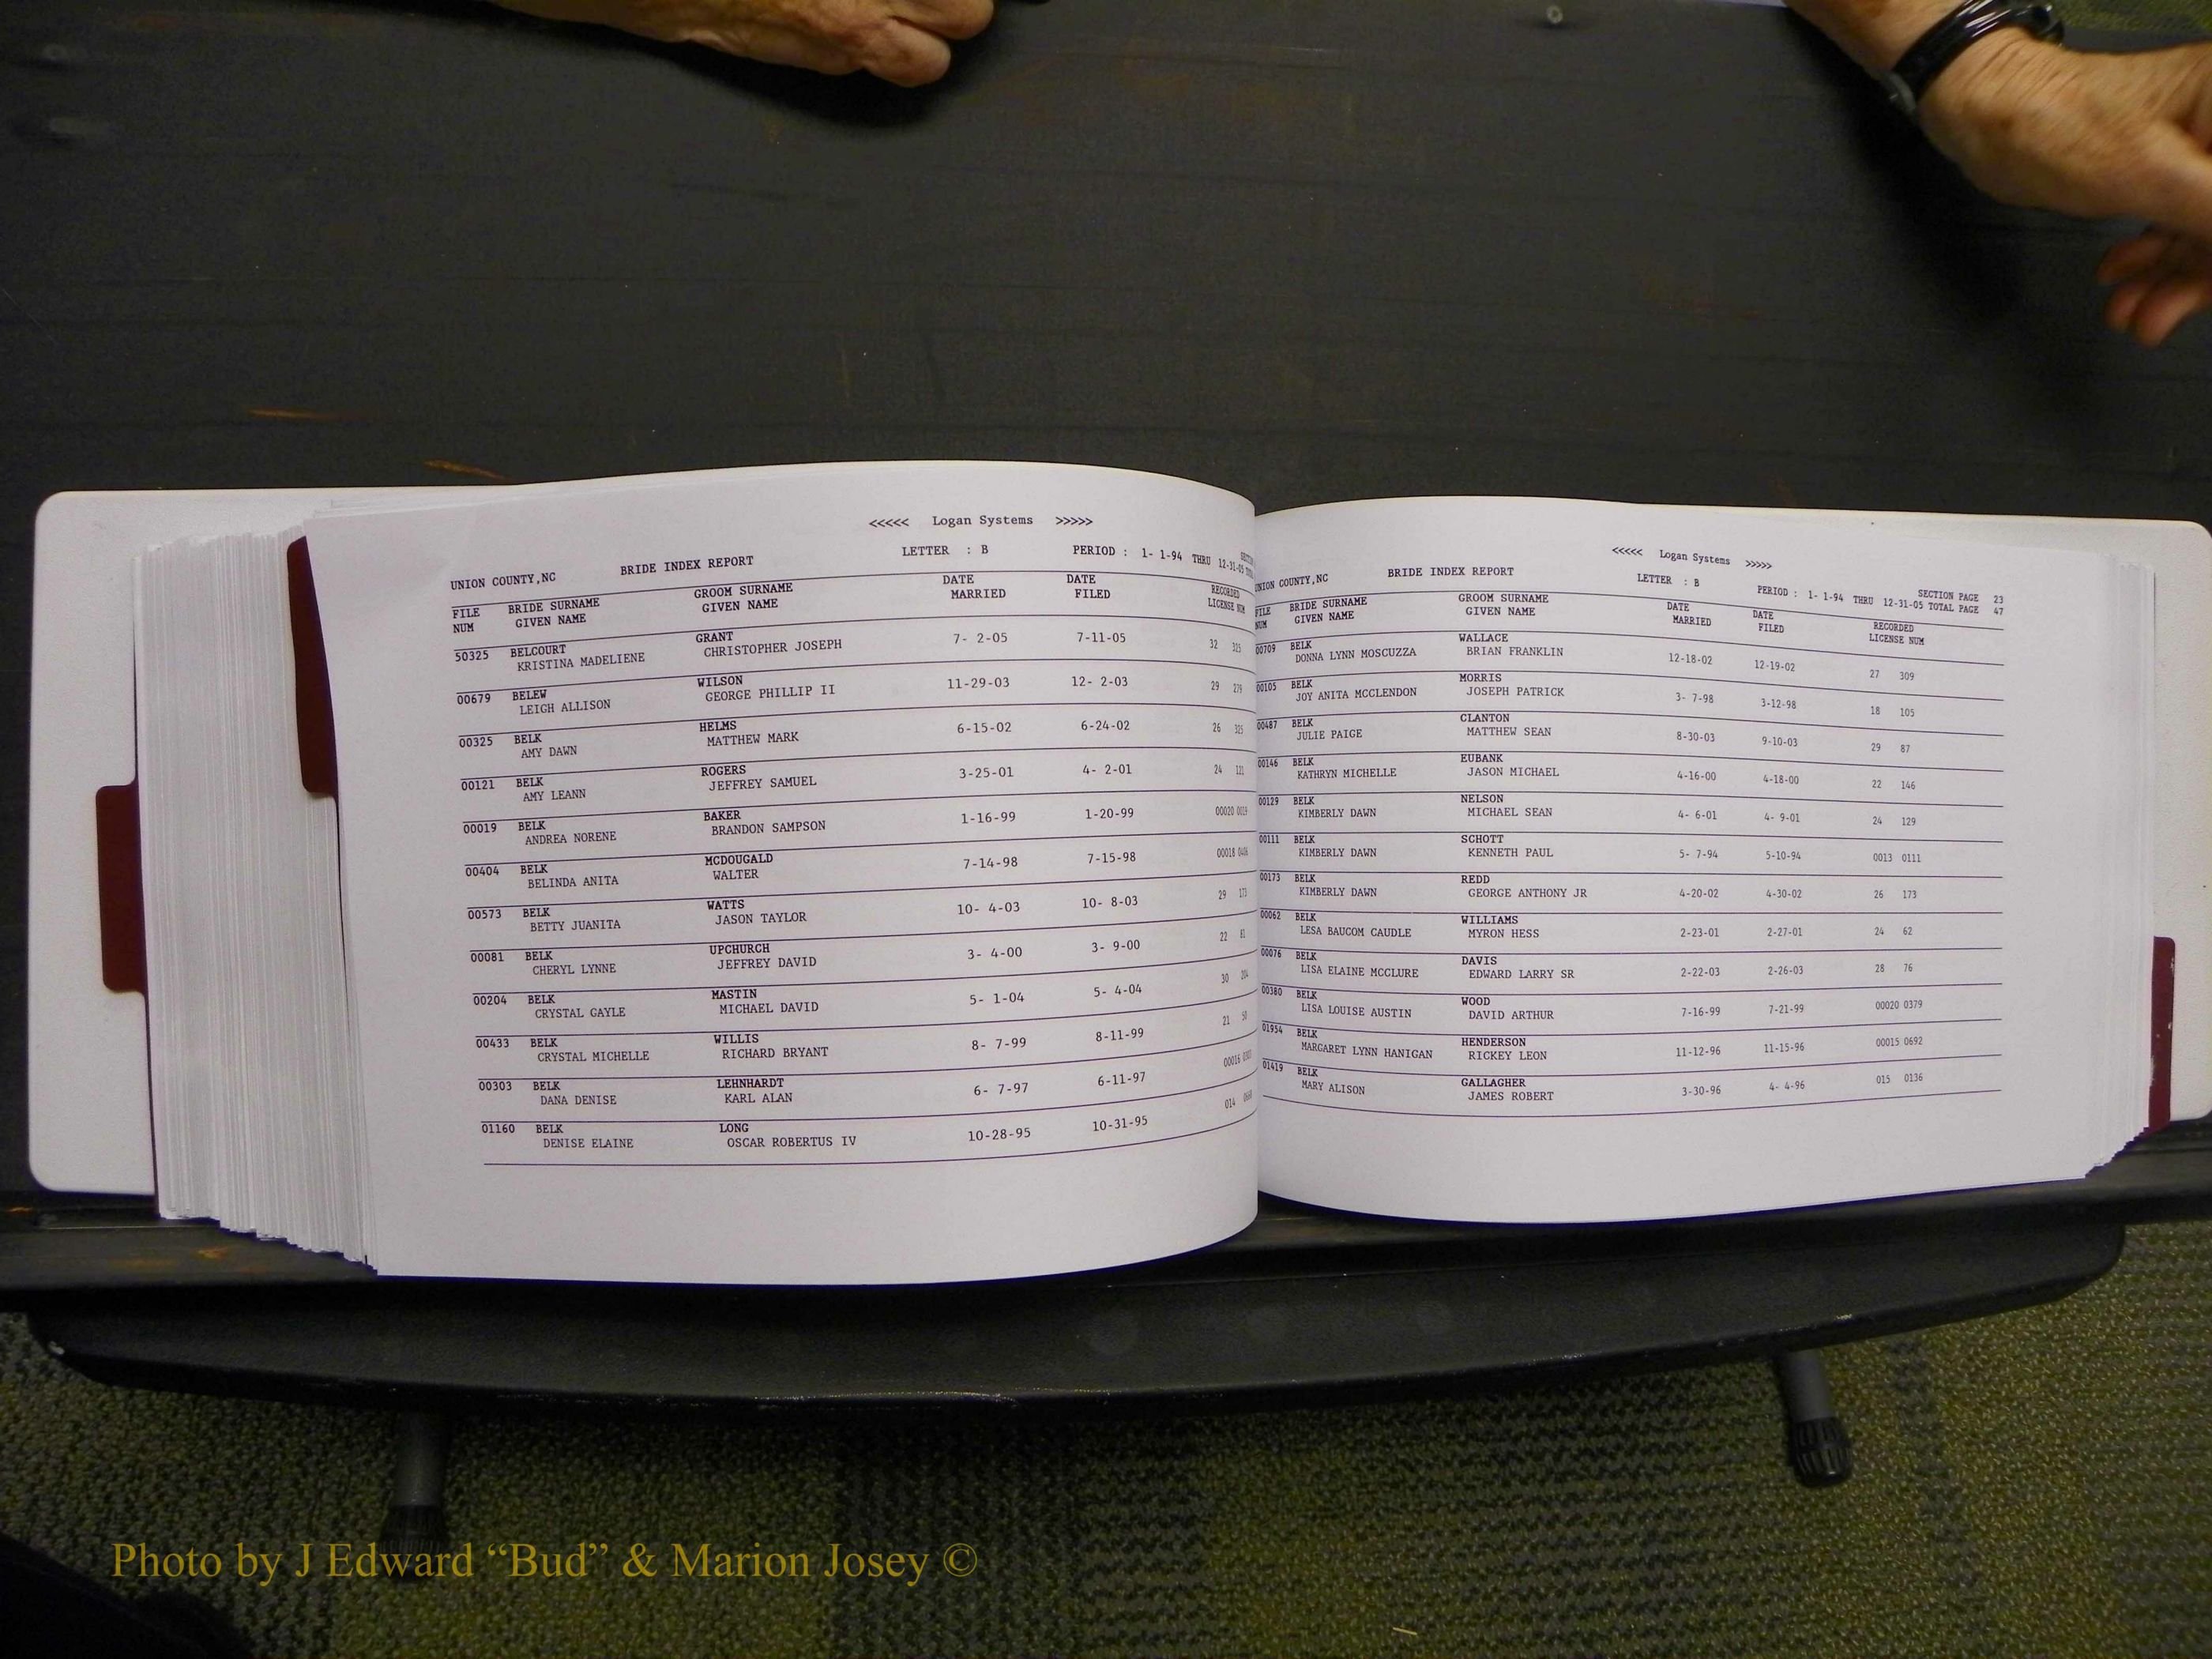 <<<<< Logan Systems >>>>>
UNION COUNTY,NC BRIDE INDEX REPORT LETTER : B PERIOD : 1- 1-94 THRU 12-31-05
FILE BRIDE SURNAME GROOM SURNAME DATE DATE RECORDED
NUM GIVEN NAME GIVEN NAME MARRIED FILED LICENSE NUM
50325 BELCOURT GRANT 7- 2-05 7-11-05 32 325
KRISTINA MADELIENE CHRISTOPHER JOSEPH
00679 BELEW WILSON 11-29-03 12- 2-03 29 279
LEIGH ALLISON GEORGE PHILLIP II
00325 BELK HELMS 6-15-02 6-24-02 26 325
AMY DAWN MATTHEW MARK
00121 BELK ROGERS 3-25-01 4- 2-01 24 121
AMY LEANN JEFFREY SAMUEL
00019 BELK BAKER 1-16-99 1-20-99 00020 0019
ANDREA NORENE BRANDON SAMPSON
00404 BELK MCDOUGALD 7-14-98 7-15-98 00018
BELINDA ANITA WALTER
00573 BELK WATTS 10- 4-03 10- 8-03 29 173
BETTY JUANITA JASON TAYLOR
00081 BELK UPCHURCH 3- 4-00 3- 9-00 22 81
CHERYL LYNNE JEFFREY DAVID
00204 BELK MASTIN 5- 1-04 5- 4-04 30 204
CRYSTAL GAYLE MICHAEL DAVID
00433 BELK WILLIS 8- 7-99 8-11-99 21
CRYSTAL MICHELLE RICHARD BRYANT
00303 BELK LEHNHARDT 6- 7-97 6-11-97 00016
DANA DENISE KARL ALAN
01160 BELK LONG 10-28-95 10-31-95 014
DENISE ELAINE OSCAR ROBERTUS IV
<<<<< Logan Systems >>>>>
UNION COUNTY,NC BRIDE INDEX REPORT LETTER : B PERIOD : 1- 1-94 THRU 12-31-05 SECTION PAGE 23
TOTAL PAGE 47
FILE BRIDE SURNAME GROOM SURNAME DATE DATE RECORDED
NUM GIVEN NAME GIVEN NAME MARRIED FILED LICENSE NUM
00709 BELK WALLACE 12-18-02 12-19-02 27 309
DONNA LYNN MOSCUZZA BRIAN FRANKLIN
00105 BELK MORRIS 3- 7-98 3-12-98 18 105
JOY ANITA MCCLENDON JOSEPH PATRICK
00487 BELK CLANTON 8-30-03 9-10-03 29 87
JULIE PAIGE MATTHEW SEAN
00146 BELK EUBANK 4-16-00 4-18-00 22 146
KATHRYN MICHELLE JASON MICHAEL
00129 BELK NELSON 4- 6-01 4- 9-01 24 129
KIMBERLY DAWN MICHAEL SEAN
00111 BELK SCHOTT 5- 7-94 5-10-94 0013 0111
KIMBERLY DAWN KENNETH PAUL
00173 BELK REDD 4-20-02 4-30-02 26 173
KIMBERLY DAWN GEORGE ANTHONY JR
00062 BELK WILLIAMS 2-23-01 2-27-01 24 62
LESA BAUCOM CAUDLE MYRON HESS
00076 BELK DAVIS 2-22-03 2-26-03 28 76
LISA ELAINE MCCLURE EDWARD LARRY SR
00380 BELK WOOD 7-16-99 7-21-99 00020 0379
LISA LOUISE AUSTIN DAVID ARTHUR
01954 BELK HENDERSON 11-12-96 11-15-96 00015 0692
MARGARET LYNN HANIGAN RICKEY LEON
01419 BELK GALLAGHER 3-30-96 4- 4-96 015 0136
MARY ALISON JAMES ROBERT
Photo by J Edward “Bud” & Marion Josey ©